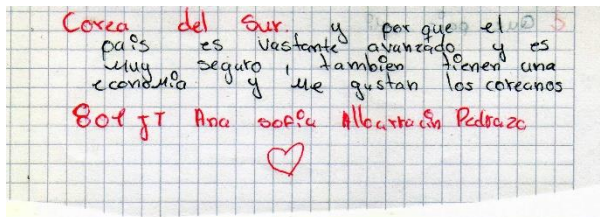 Corea del Sur. y por que el
país es vastante avanzado y es
muy seguro, tambien tienen una
economía y me gustan los coreanos
801 JT Ana sofía Albarracín Pedraza